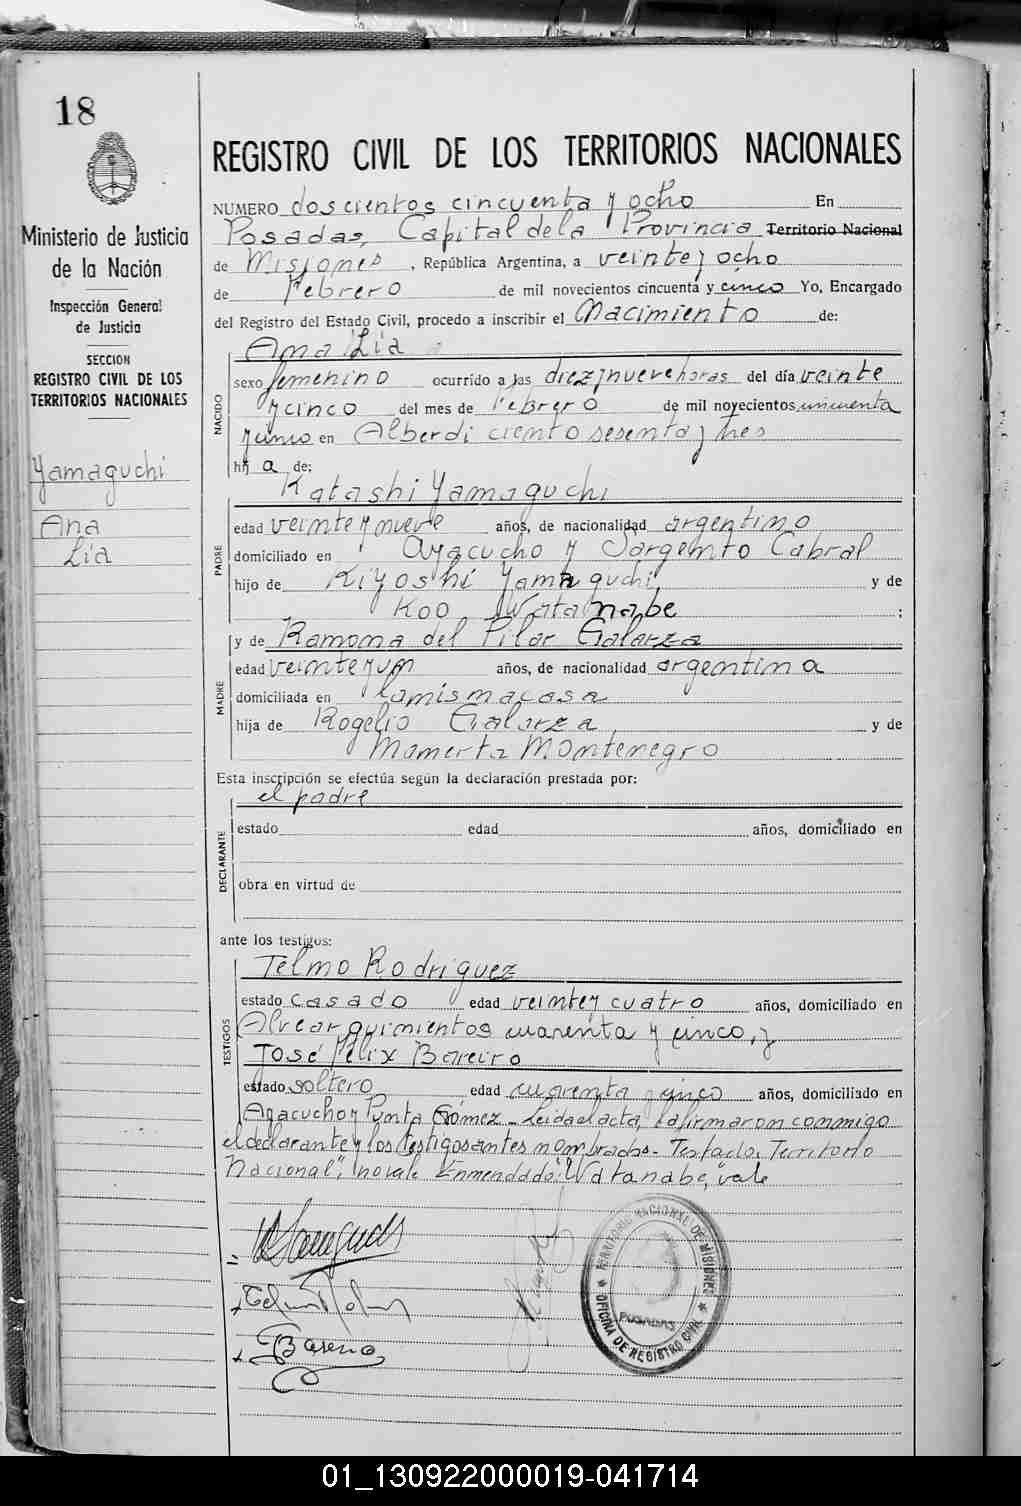 18
Ministerio de Justicia
de la Nación
Inspección General
de Justicia
SECCION
REGISTRO CIVIL DE LOS
TERRITORIOS NACIONALES
Yamaguchi
Ana
Lía
REGISTRO CIVIL DE LOS TERRITORIOS NACIONALES
NUMERO doscientos cincuenta y ocho En
Posadas, Capital de la Provincia Territorio Nacional
de Misiones, República Argentina, a veinte y ocho
de febrero de mil novecientos cincuenta y cinco Yo, Encargado
del Registro del Estado Civil, procedo a inscribir el Nacimiento de:
NACIDO
Ana Lía
sexo femenino ocurrido a las diez y nueve horas del día veinte
y cinco del mes de febrero de mil novecientos cincuenta
y cinco en Alberdi ciento sesenta y tres
hij a de:
PADRE
Katashi Yamaguchi
edad veinte y nueve años, de nacionalidad argentino
domiciliado en Ayacucho y Sargento Cabral
hijo de Kiyoshi Yamaguchi y de
Koo Watanabe ;
MADRE
y de Ramona del Pilar Galarza
edad veinte y un años, de nacionalidad argentina
domiciliada en la misma casa
hija de Rogelio Galarza y de
Mamerta Montenegro
Esta inscripción se efectúa según la declaración prestada por:
DECLARANTE
el padre
estado edad años, domiciliado en
obra en virtud de
ante los testigos:
TESTIGOS
Telmo Rodriguez
estado casado edad veinte y cuatro años, domiciliado en
Alvear quinientos cuarenta y cinco, y
José Félix Bareiro
estado soltero edad cuarenta y cinco años, domiciliado en
Ayacucho y Punta Gómez - Leida el acta, la firmaron conmigo
el declarante y los testigos antes nombrados - Testado: Territorio
Nacional", no vale Enmendado: "Watanabe", vale
TERRITORIO NACIONAL DE MISIONES
POSADAS
OFICINA DE REGISTRO CIVIL
01_130922000019-041714